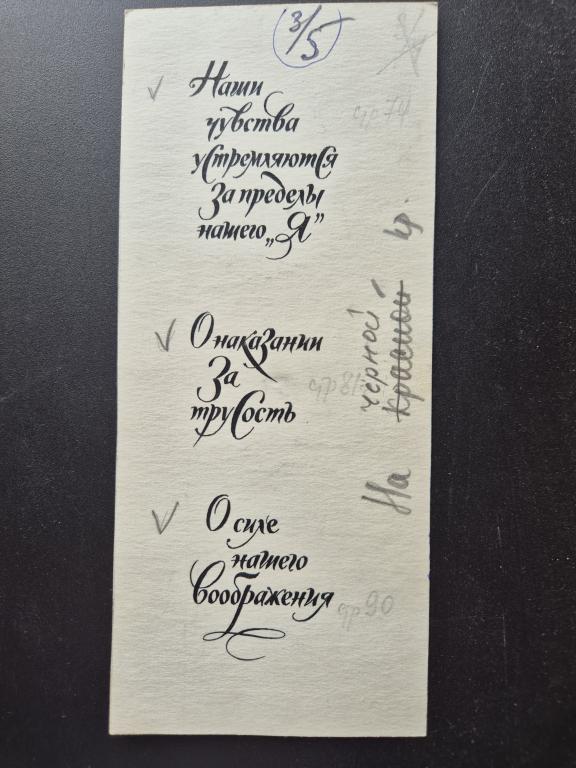 3/5
Наши
чувства
устремляются
За пределы
нашего „Я”
стр 74
О наказании
За
трусость
стр 81
О силе
нашего
воображения
стр 90
На красной кр.
чёрной